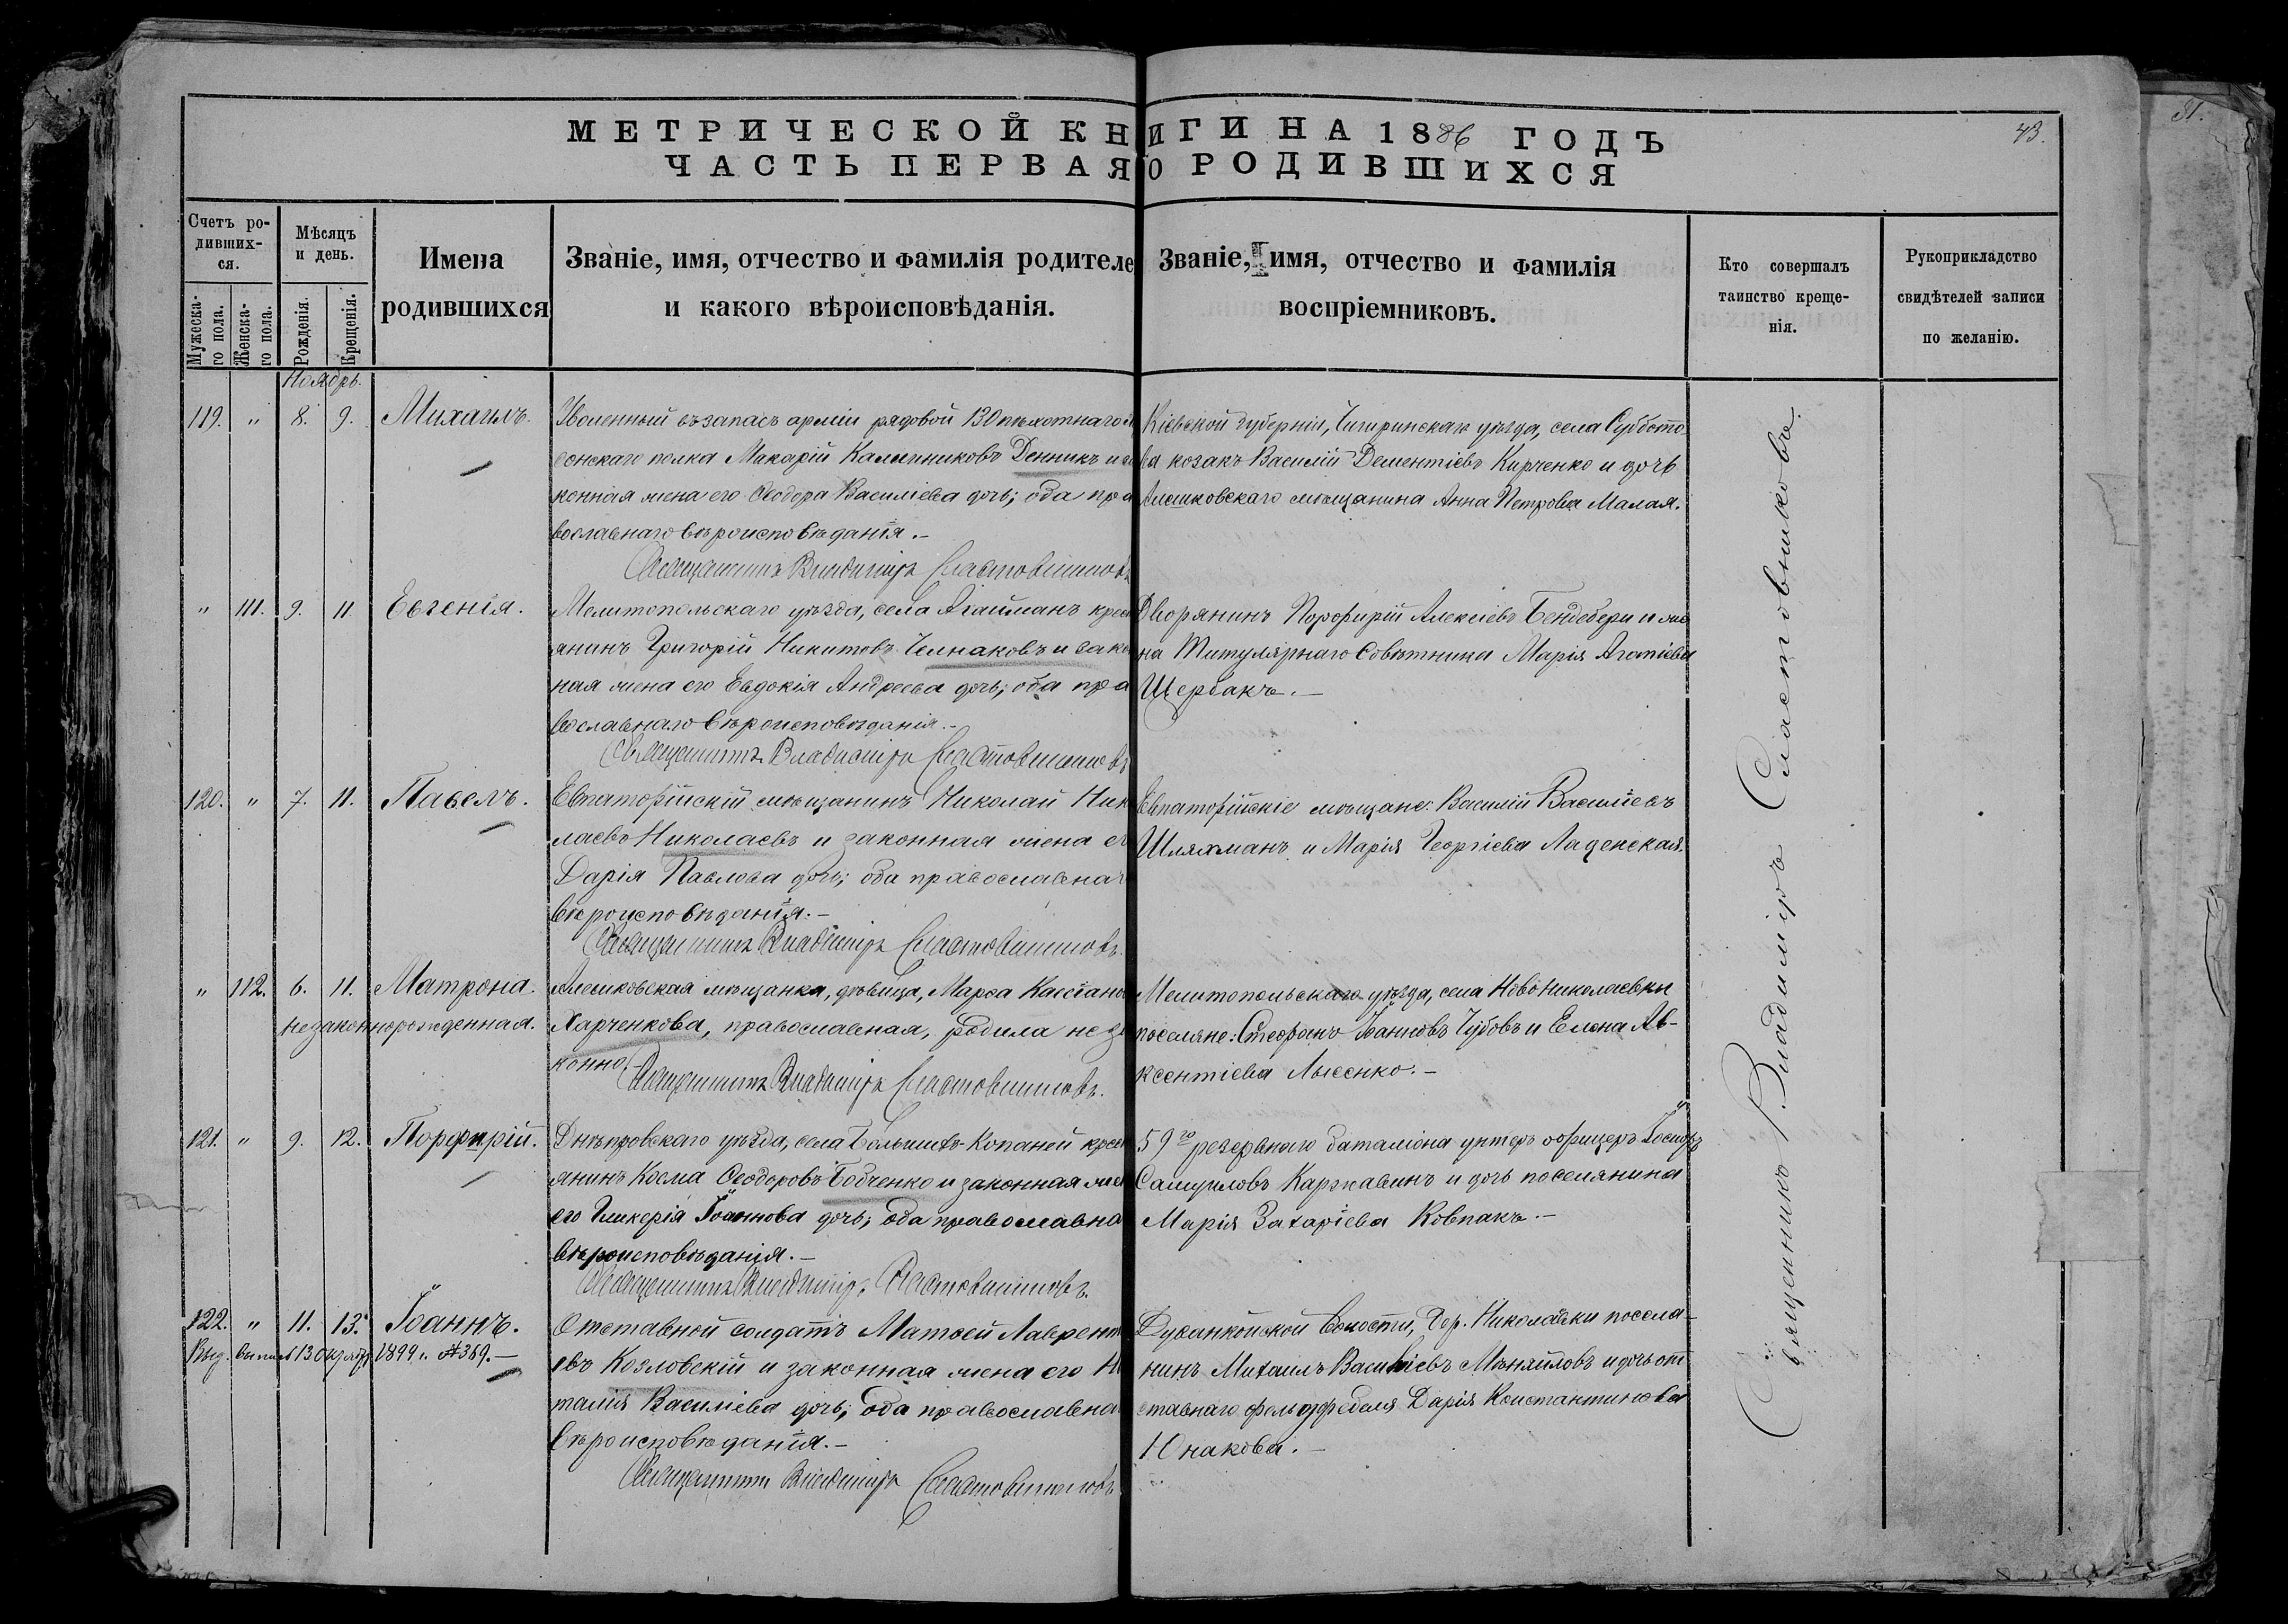 МЕТРИЧЕСКОЙ КНИГИ НА 1886 ГОДЪ
ЧАСТЬ ПЕРВАЯ О РОДИВШИХСЯ
43.
31.
Счетъ ро-
дивших-
ся.
Мужеска-
го пола.
Женска-
го пола.
Мѣсяцъ
и день.
Рожденія.
Крещенія.
Имена
родившихся
Званіе, имя, отчество и фамилія родителе
и какого вѣроисповѣданія.
Званіе, имя, отчество и фамилія
воспріемниковъ.
Кто совершалъ
таинство креще-
нія.
Рукоприкладство
свидѣтелей записи
по желанію.
Ноябрь.
119. " 8. 9. Михаилъ.
Уволенный въ запасъ арміи рядовой 130 пѣхотнаго
сонскаго полка Макарій Калинниковъ Денникъ и за
конная жена его Ѳеодора Василіева дочь; оба пра
вославнаго вѣроисповѣданія.-
Священникъ Владиміръ Сластовниковъ
Кіевской губерніи, Чигиринскаго уѣзда, села Суббото-
ва козакъ Василій Дементіевъ Кирченко и дочь
Алешковскаго мѣщанина Анна Петрова Малая.
" 111. 9. 11. Евгенія.
Мелитопольскаго уѣзда, села Агайманъ крест
янинъ Григорій Никитовъ Челнаковъ и закон
ная жена его Евдокія Андреева дочь; оба пра
вославнаго вѣроисповѣданія.-
Священникъ Владиміръ Сластовниковъ
Дворянинъ Порфирій Алексіевъ Бендебери и же
на Титулярнаго Совѣтника Марія Агапіева
Щербакъ.-
120. " 7. 11. Павелъ.
Евпаторійскій мѣщанинъ Николай Нико
лаевъ Николаевъ и законная жена ег
Дарія Павлова дочь; оба православнаг
вѣроисповѣданія.-
Священникъ Владиміръ Сластовниковъ.
Евпаторійскіе мѣщане: Василій Василіевъ
Шляхманъ и Марія Георгіева Ладенская.
" 112. 6. 11. Матрона.
незаконнорожденная.
Алешковская мѣщанка, дѣвица, Марѳа Кассіанов
Харченкова, православная, родила неза
конно.-
Священникъ Владиміръ Сластовниковъ.
Мелитопольскаго уѣзда, села Новониколаевки
поселяне: Стефанъ Іоанновъ Чубовъ и Елена Ав-
ксентіева Лысенко.-
121. " 9. 12. Порфирій.
Днѣпровскаго уѣзда, села Большихъ-Копаней крест
янинъ Косма Ѳеодоровъ Бобченко и законная жен
его Гликерія Іоаннова дочь; оба православна
вѣроисповѣданія.-
Священникъ Владиміръ Сластовниковъ.
59го резервнаго баталіона унтеръ офицеръ Іосифъ
Самуиловъ Каржавинъ и дочь поселянина
Марія Захаріева Ковпакъ.-
122. " 11. 13. Іоаннъ.
Выд. выпись 13 октября 1899 г. № 389.-
Отставной солдатъ Матѳей Лаврент
евъ Козловскій и законная жена его На
талія Василіева дочь; оба православна
вѣроисповѣданія.-
Священникъ Владиміръ Сластовниковъ
волости, дер. Николаевки поселя-
нинъ Михаилъ Василіевъ Мѣняйловъ и дочь от
ставнаго фельдфебеля Дарія Константинова
Юнакова.-
Священникъ Владиміръ Сластовниковъ.